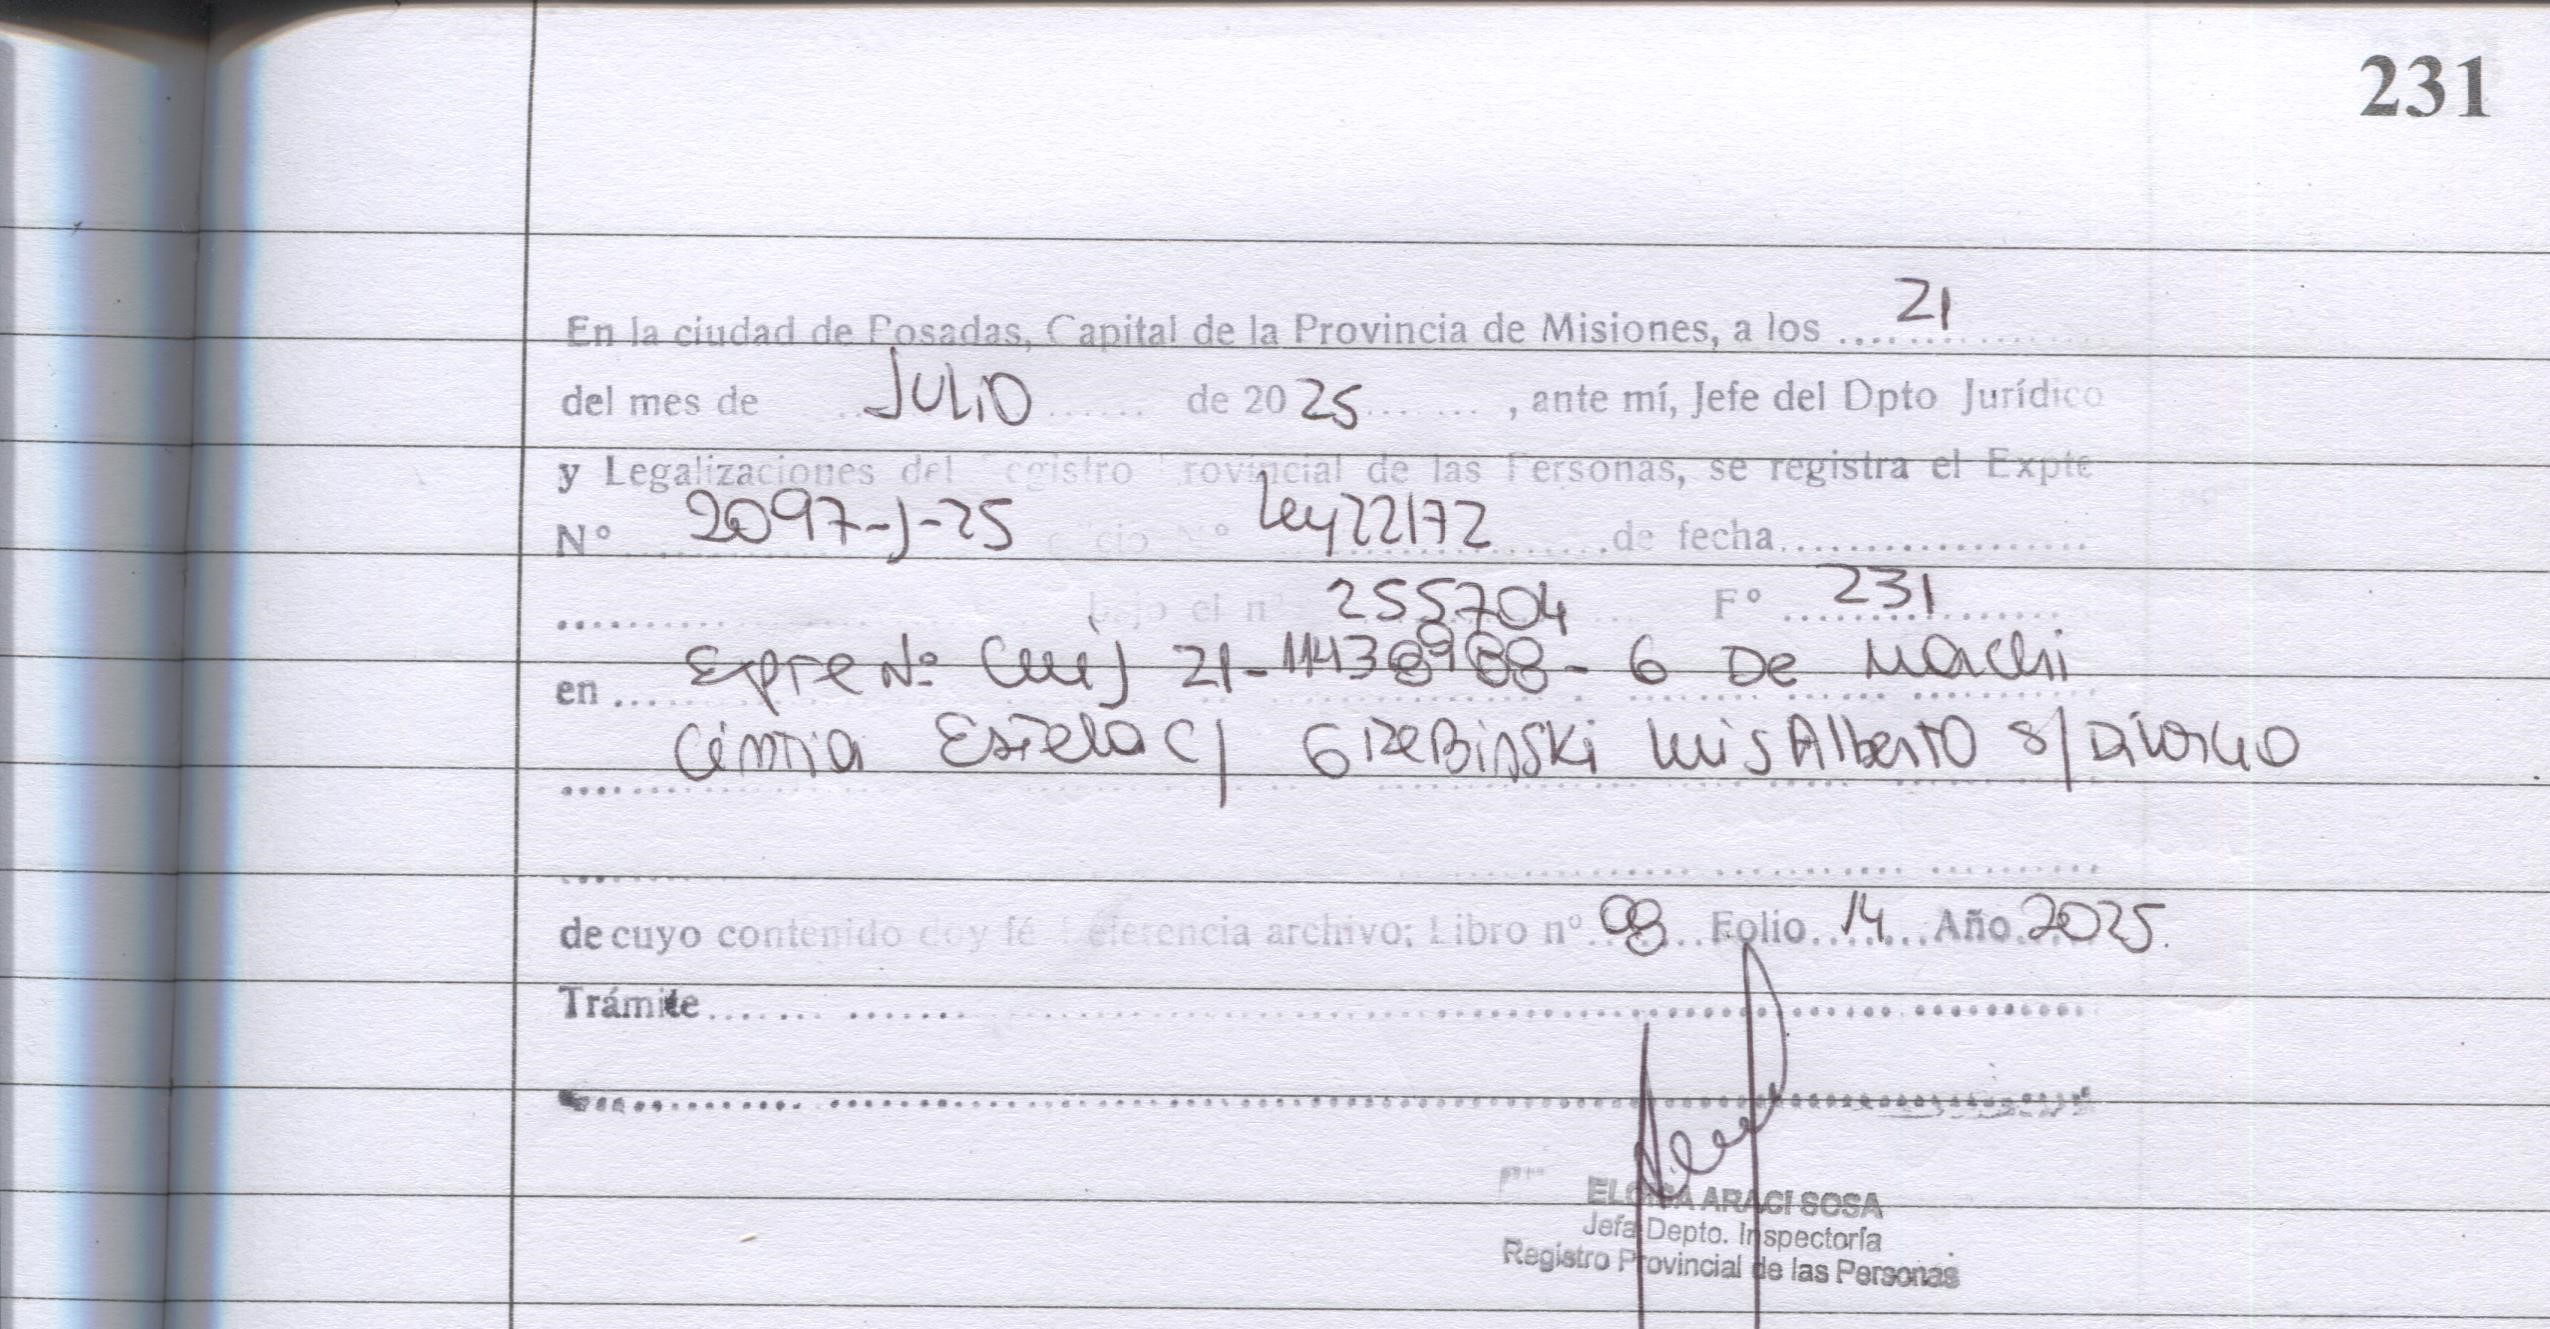 231
En la ciudad de Posadas, Capital de la Provincia de Misiones, a los ....21
del mes de JULIO de 2025 , ante mí, Jefe del Dpto Jurídico
y Legalizaciones del Registro Provincial de las Personas, se registra el Expte
Nº 2097-J-25 oficio Nº Ley 22172 de fecha
bajo el nº 255704 Fº 231
en Expte Nº Cuij 21- - 6 De Machi
Cintia Estela C/ GrzeBinski Luis Alberto S/ Divorcio
de cuyo contenido doy fé Referencia archivo: Libro nº 08 Folio 14 Año 2025.
Trámite
ELOISA ARACI SOSA
Jefa Depto. Inspectoría
Registro Provincial de las Personas